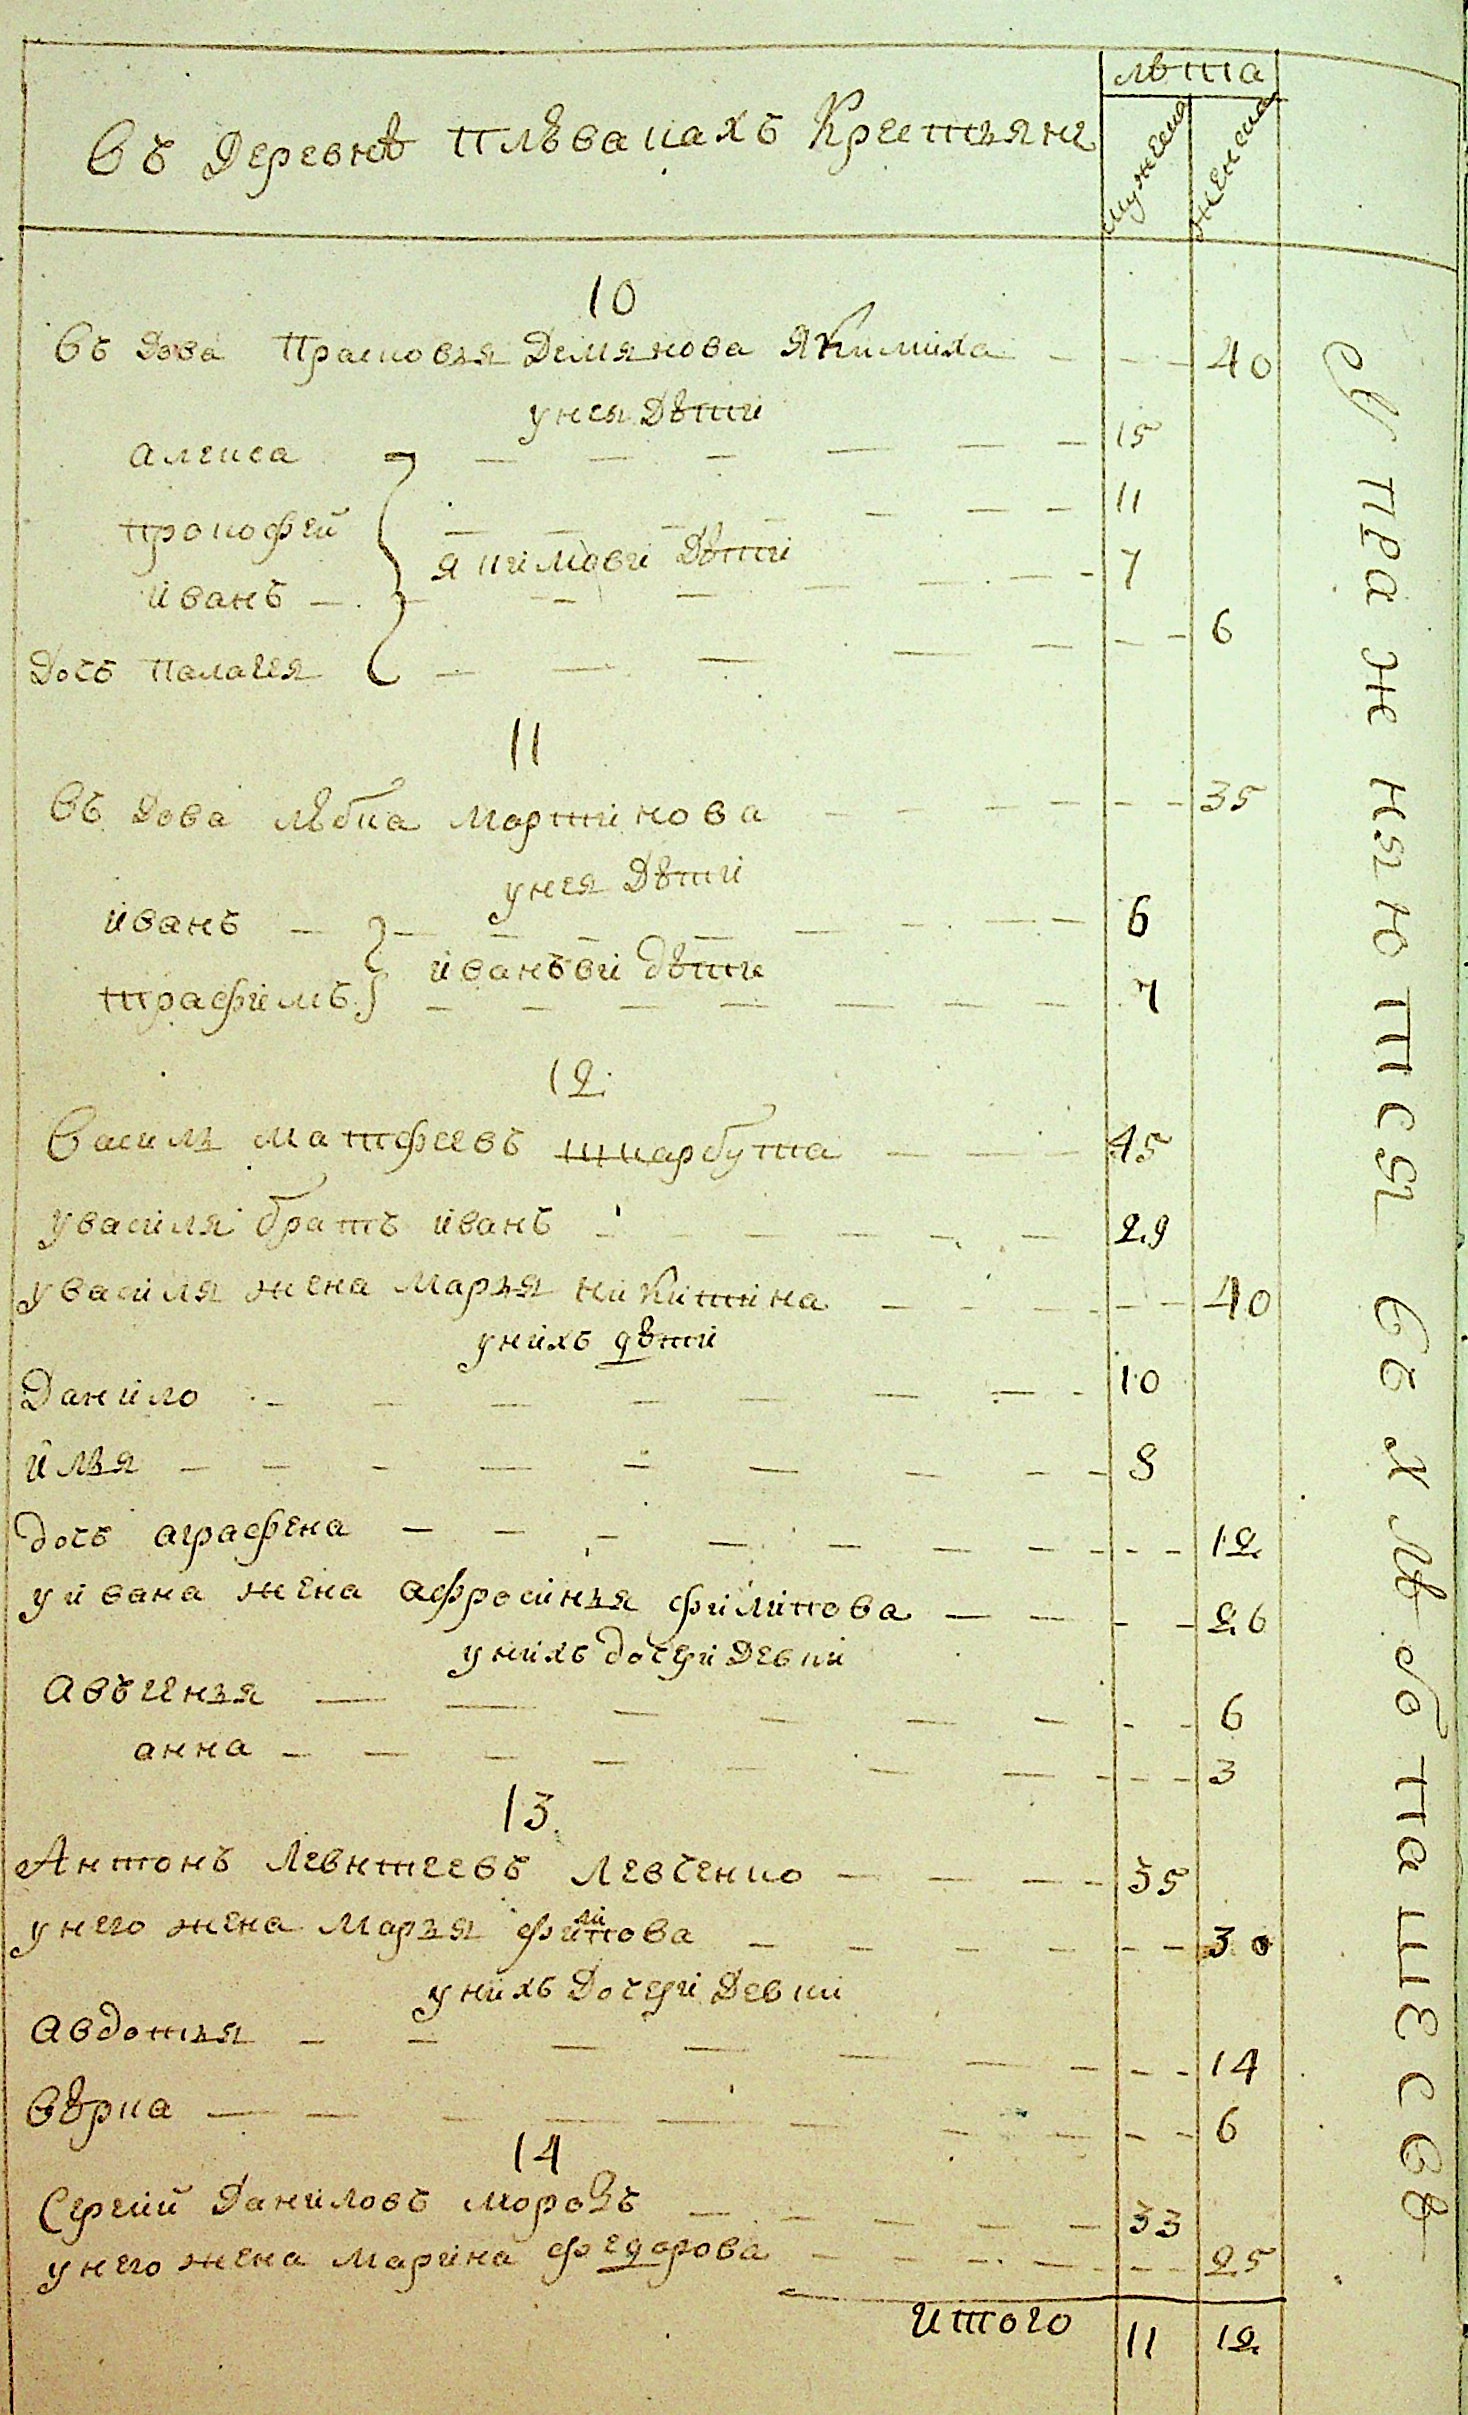 лѣта
мужеска
женска
Въ Деревнѣ плѣвакахъ Крестьяне
10
Въ Дова Прасковья Демянова Якимиха 40
унея Дѣти
алексa 15
прокофей 11
якимови Дѣти
иванъ 7
Дочь палагея 6
11
Въ Дова лѣбка мартинова 35
унея Дѣти
иванъ 6
ивановы дѣти
трафимъ 7
12
Василь матфеевъ шкарбута 45
увасиля братъ иванъ 29
увасиля жена марья никитина 40
унихъ дѣти
Данило 10
илья 8
дочь аграфена 12
уивана жена афросинья филипова 26
унихъ дочери Девки
Авъгенья 6
анна 3
13
Антонъ Левнтеевъ Левченко 35
унего жена марья филипова 30
унихъ Дочери Девки
авдотья 14
вѣрка 6
14
Сергий Даниловъ морозъ 33
унего жена марина федорова 25
итого 11 12
Упражняются въ хлѣбопашествѣ